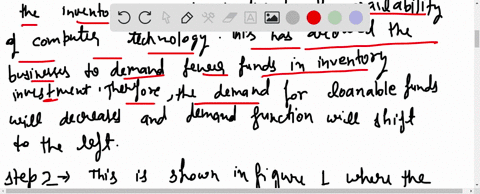 the invento
availability
of computer technology. This has allowed the
businesses to demand fewer funds in inventory
investment. Therefore, the demand for loanable funds
will decreases and demand function will shift
to the left.
step 2 → This is shown in figure 1 where the